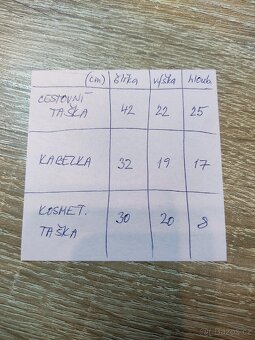 (cm) šířka výška hloub.
CESTOVNÍ
TAŠKA 42 22 25
KABELKA 32 19 17
KOSMET. 30 20 8
TAŠKA